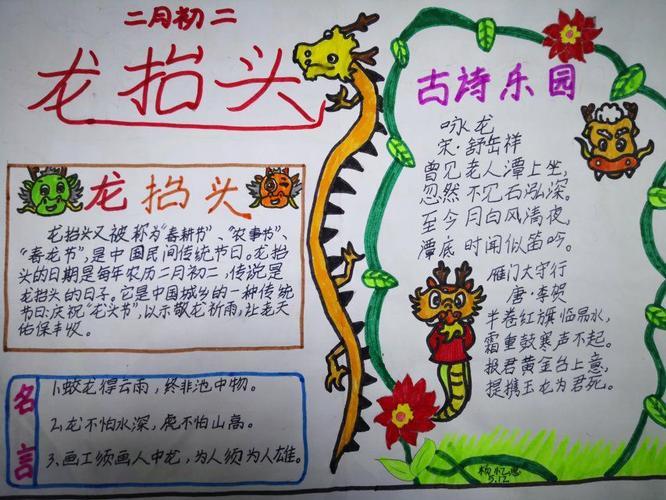 二月初二
龙抬头
龙抬头
龙抬头又被称为“春耕节”、“农事节”、
“春龙节”,是中国民间传统节日。龙抬
头的日期是每年农历二月初二,传说是
龙抬头的日子。它是中国城乡的一种传统
节日,庆祝“龙头节”,以示敬龙祈雨,让老天
佑保丰收。
名言
1、蛟龙得云雨,终非池中物。
2、龙不怕水深,虎不怕山高。
3、画工须画人中龙,为人须为人雄。
古诗乐园
咏龙
宋·舒岳祥
曾见老人潭上坐,
忽然不见石泓深。
至今月白风清夜,
潭底时闻似笛吟。
雁门太守行
唐·李贺
半卷红旗临易水,
霜重鼓寒声不起。
报君黄金台上意,
提携玉龙为君死。
5.12